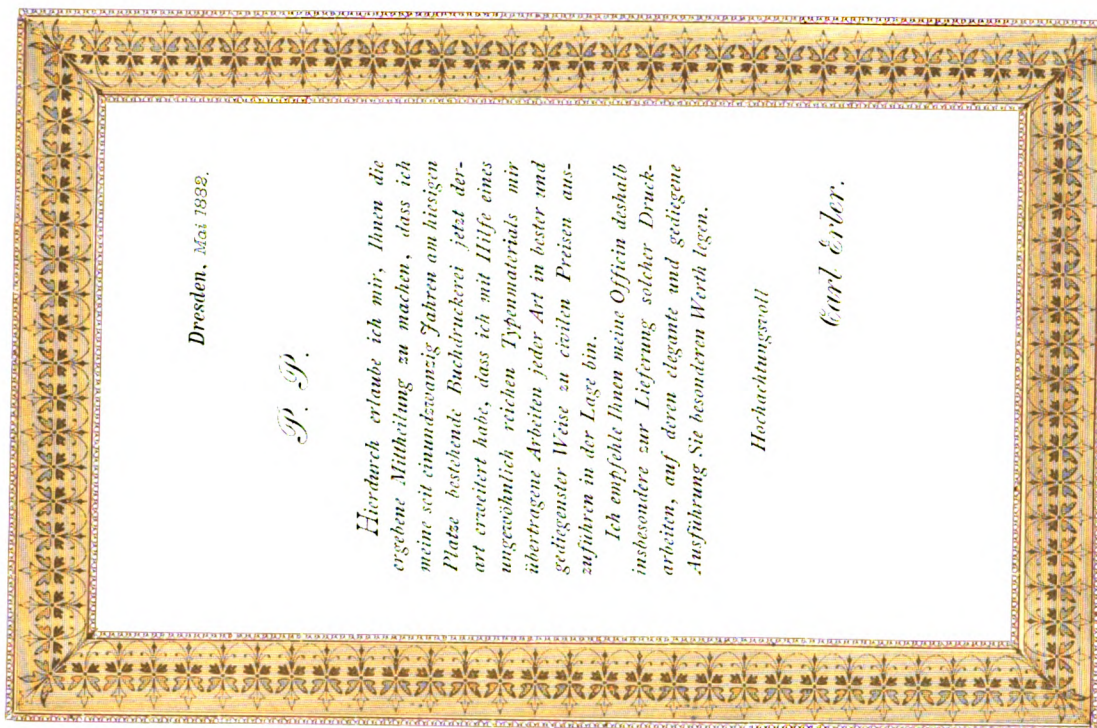 Dresden, Mai 1882.
P. P.
Hierdurch erlaube ich mir, Ihnen die
ergebene Mittheilung zu machen, dass ich
meine seit einundzwanzig Jahren am hiesigen
Platze bestehende Buchdruckerei jetzt der-
art erweitert habe, dass ich mit Hilfe eines
ungewöhnlich reichen Typenmaterials mir
übertragene Arbeiten jeder Art in bester und
gediegenster Weise zu civilen Preisen aus-
zuführen in der Lage bin.
Ich empfehle Ihnen meine Officin deshalb
insbesondere zur Lieferung solcher Druck-
arbeiten, auf deren elegante und gediegene
Ausführung Sie besonderen Werth legen.
Hochachtungsvoll
Carl Erler.